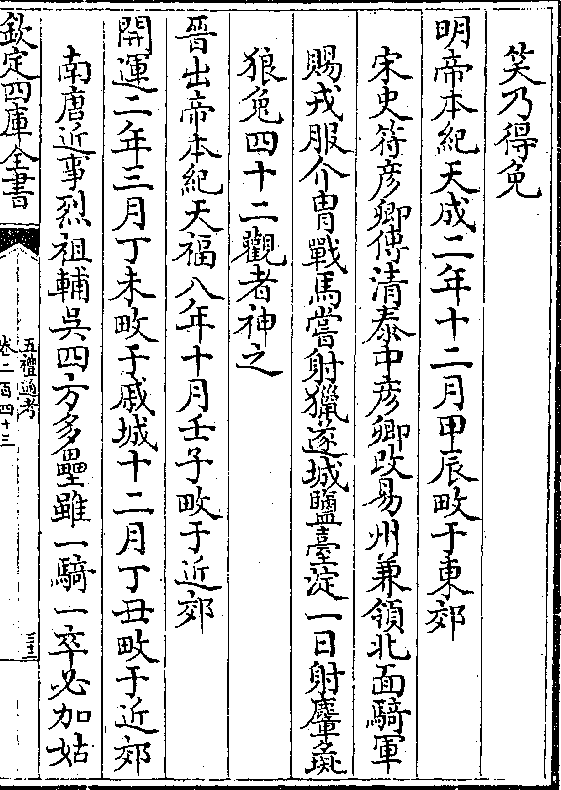 笑乃得免
明帝本紀天成二年十二月甲辰畋于東郊
宋史符彦卿傳清泰中彦卿改易州兼領北面騎軍
賜戎服介胄戰馬嘗射獵遂城鹽臺淀一日射麞彘
狼兔四十二觀者神之
晉出帝本紀天福八年十月壬子畋于近郊
開運二年三月丁未畋于戚城十二月丁丑畋于近郊
南唐近事烈祖輔吳四方多壘雖一騎一卒必加姑
欽定四庫全書
五禮通考
卷二百四十三
三十二